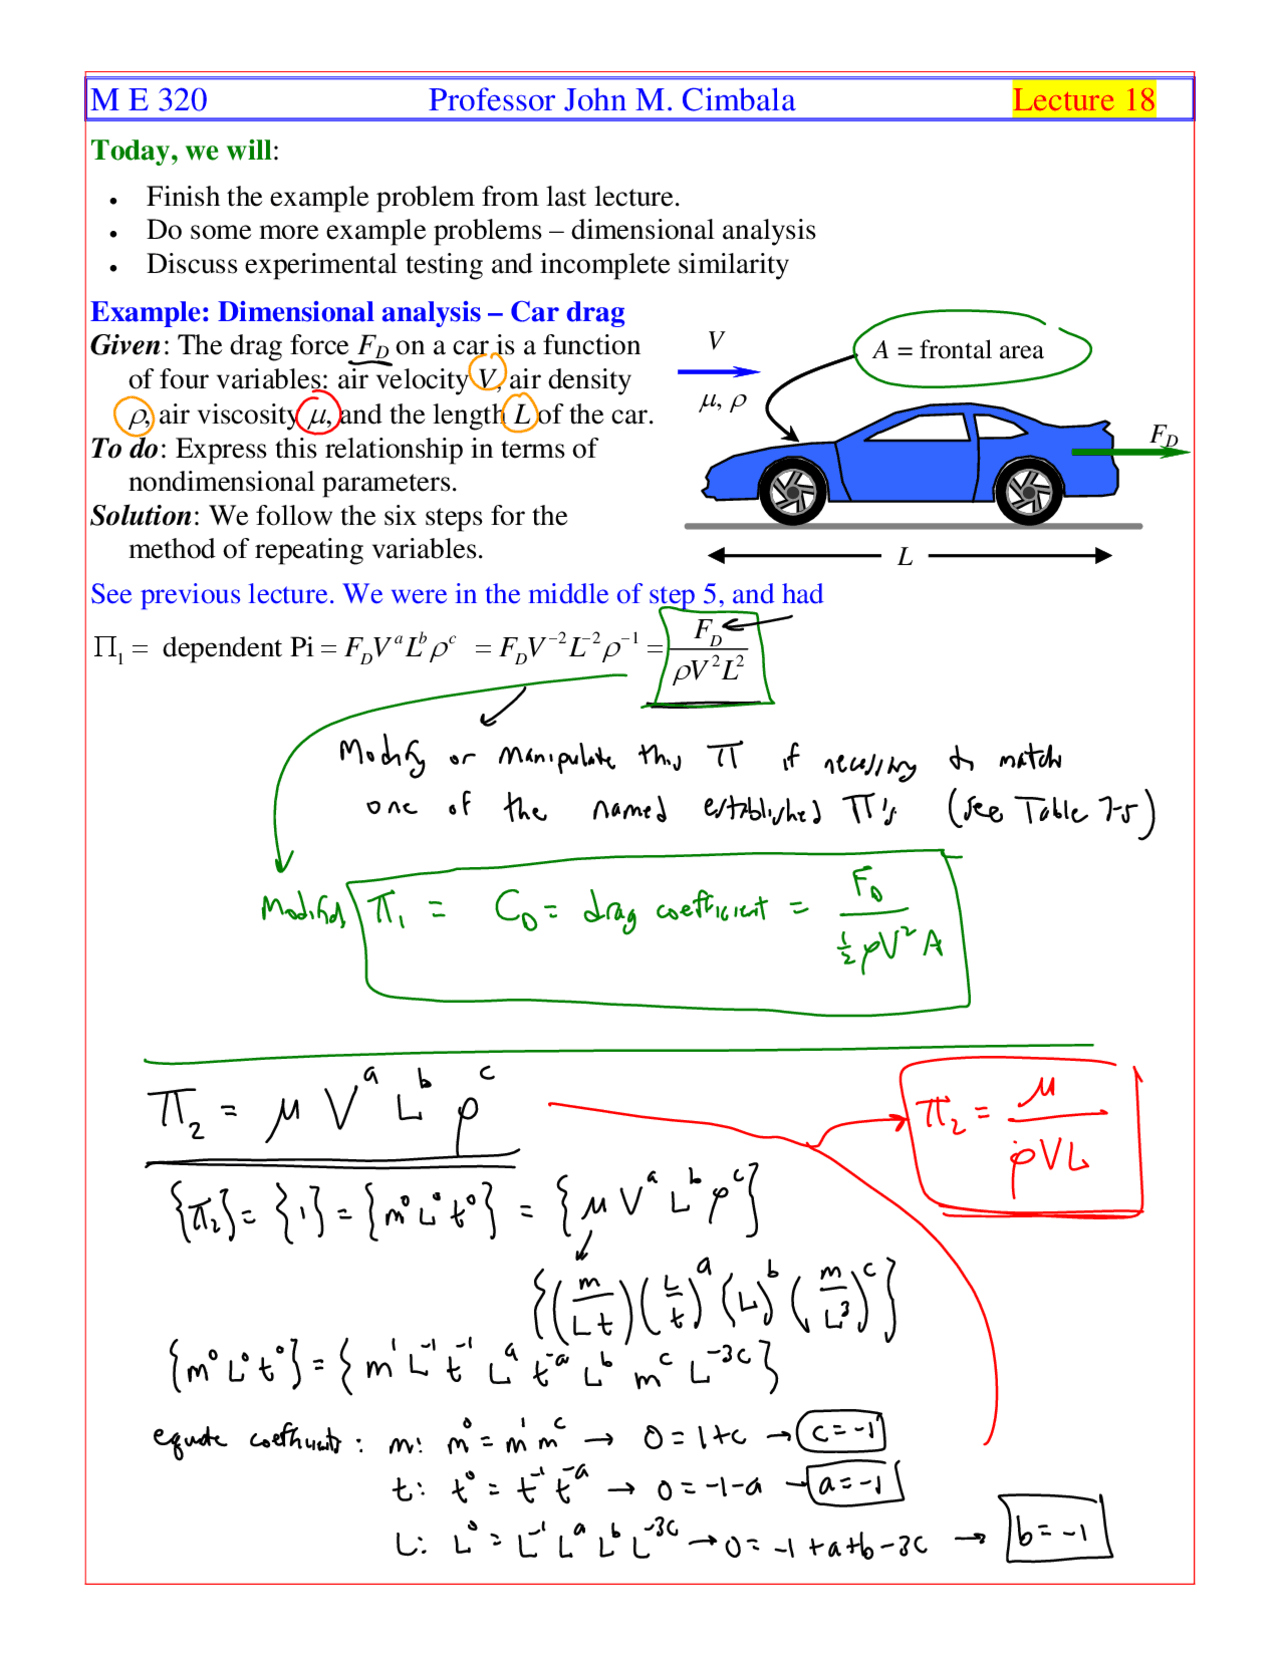 M E 320 Professor John M. Cimbala Lecture 18
Today, we will:
• Finish the example problem from last lecture.
• Do some more example problems – dimensional analysis
• Discuss experimental testing and incomplete similarity
Example: Dimensional analysis – Car drag
Given: The drag force F_D on a car is a function
of four variables: air velocity V, air density
ρ, air viscosity μ, and the length L of the car.
To do: Express this relationship in terms of
nondimensional parameters.
Solution: We follow the six steps for the
method of repeating variables.
V
μ, ρ
A = frontal area
F_D
L
See previous lecture. We were in the middle of step 5, and had
Π₁ = dependent Pi = F_D V^a L^b ρ^c = F_D V^-2 L^-2 ρ^-1 = F_D / (ρV²L²)
Modify or manipulate this Π if necessary to match
one of the named established Π's (see Table 7-5)
Modified Π₁ = C_D = drag coefficient = F_D / (½ρV²A)
Π₂ = μ V^a L^b ρ^c
Π₂ = μ / (ρVL)
{Π₂} = {1} = {m⁰L⁰t⁰} = {μ V^a L^b ρ^c}
{(m/Lt)(L/t)^a (L)^b (m/L³)^c}
{m⁰L⁰t⁰} = {m¹ L^-1 t^-1 L^a t^-a L^b m^c L^-3c}
equate coefficients: m: m⁰ = m¹ m^c → 0 = 1+c → c = -1
t: t⁰ = t^-1 t^-a → 0 = -1-a → a = -1
L: L⁰ = L^-1 L^a L^b L^-3c → 0 = -1+a+b-3c → b = -1